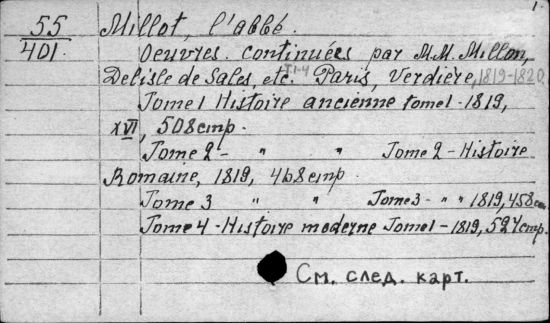 1.
55
401
Millot, l'abbé.
Oeuvres. continuées par M.M. Millon,
Delisle de Sales, etc. T.1-4 Paris, Verdière, 1819-1820
Tome 1 Histoire ancienne tome 1 - 1819,
XVI, 508 стр.
Tome 2 - " " Tome 2 - Histoire
Romaine, 1819, 468 стр
Tome 3 " " Tome 3 - " " 1819, 458 ст.
Tome 4 - Histoire moderne Tome 1 - 1819, 524 стр.
См. след. карт.